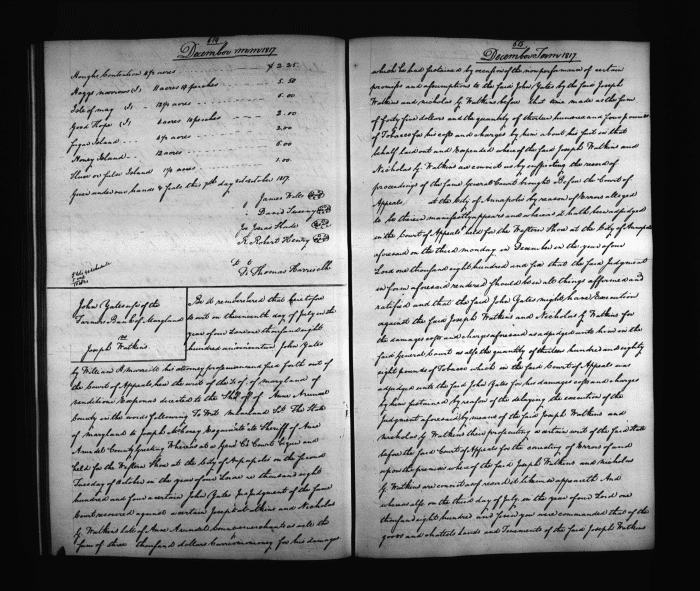 614
December Term 1817
Houghs Contention 4½ acres $ 2.25
Haggs narrows (I) 11 acres 18 perches 5.50
Isle of may (I) 12½ acres 6.00
Good Hope (I) 6 acres 10 perches 3.00
Fugue Island 4½ acres 2.00
Honey Island 12 acres 6.00
Shew or piles Island 1½ acres 1.00
Given under our hands & seals the 7th day of October 1817.
James Wells
David
Jonas
Robert Henry
Thomas Harris Clk
John Yates use of the
Farmers Bank of Maryland
vs
Joseph Watkins
Be it remembered that heretofore
to wit on the tenth day of July in the
year of our Lord one thousand eight
hundred and seventeen John Yates
by William his attorney professionned sued forth out of
the Court of Appeals here the writ of the State of maryland of
venditioni Exponas directed to the Sheriff of Anne Arundel
County in the words following To Wit Maryland Sct The State
of maryland to Joseph McCeney Esquire late Sheriff of Anne
Arundel County Greeting Whereas at a General Court begun and
held for the Western Shore at the City of Annapolis on the second
Tuesday of October in the year of our Lord one thousand eight
hundred and four a certain John Yates by judgment of the same
Court recovered against a certain Joseph Watkins and Nicholas
G. Watkins late of Anne Arundel County merchants as well the
sum of three thousand dollars Current money for his damages
615
December Term 1817
which he had sustained by occasion of the non performance of certain
promises and assumptions to the said John Yates by the said Joseph
Watkins and Nicholas G Watkins before that time made as the sum
of forty five dollars and the quantity of sixteen hundred and four pounds
of Tobacco for his costs and charges by him about his suit in that
behalf laid out and Expended whereof the said Joseph Watkins and
Nicholas G. Watkins are convict as by inspecting the record of
proceedings of the said General Court brought Before the Court of
Appeals, at the City of Annapolis by reason of Errors alleged
to be therein manifestly appears and whereas it hath been adjudged
in the Court of Appeals held for the Western Shore at the City of Annapolis
aforesaid on the third monday in December in the year of our
Lord one thousand eight hundred and six that the said Judgment
in form aforesaid rendered should be in all things affirmed and
ratified and that the said John Yates might have Execution
against the said Joseph Watkins and Nicholas G Watkins for
the damages costs and charges aforesaid as adjudged unto him in the
said General Court as also the quantity of sixteen hundred and eighty
eight pounds of Tobacco which in the said Court of Appeals was
adjudged unto the said John Yates for his damages costs and charges
by him sustained by reason of the delaying the execution of the
Judgment aforesaid by means of the said Joseph Watkins and
Nicholas G Watkins their prosecuting a certain writ of the said State
before the said Court of Appeals for the correcting of Errors of and
upon the premises whereof the said Joseph Watkins and Nicholas
G. Watkins are convict as of record it to him appeareth And
whereas also on the third day of July in the year of our Lord one
thousand eight hundred and seven you were commanded that of the
goods and chattels lands and Tenements of the said Joseph Watkins